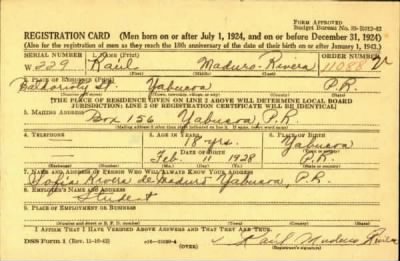 FORM APPROVED
Budget Bureau No. 33-R012-42
REGISTRATION CARD (Men born on or after July 1, 1924, and on or before December 31, 1924)
(Also for the registration of men as they reach the 18th anniversary of the date of their birth on or after January 1, 1943.)
SERIAL NUMBER 1. NAME (Print) ORDER NUMBER
W 229 Raúl Maduro-Rivera 11088
(First) (Middle) (Last)
2. PLACE OF RESIDENCE (Print)
Baldorioty St. Yabucoa P.R.
[THE PLACE OF RESIDENCE GIVEN ON LINE 2 ABOVE WILL DETERMINE LOCAL BOARD
JURISDICTION; LINE 2 OF REGISTRATION CERTIFICATE WILL BE IDENTICAL]
3. MAILING ADDRESS
Box 156 Yabucoa, P.R.
[Mailing address if other than place indicated on line 2. If same, insert word same]
4. TELEPHONE 5. AGE IN YEARS 6. PLACE OF BIRTH
18 yrs. Yabucoa
DATE OF BIRTH
Feb 11 1928 P.R.
7. NAME AND ADDRESS OF PERSON WHO WILL ALWAYS KNOW YOUR ADDRESS
Rivera de Maduro Yabucoa, P.R.
8. EMPLOYER'S NAME AND ADDRESS
Student
9. PLACE OF EMPLOYMENT OR BUSINESS
(Number and street or R. F. D. number) (Town) (County) (State)
I AFFIRM THAT I HAVE VERIFIED ABOVE ANSWERS AND THAT THEY ARE TRUE.
DSS Form 1 (Rev. 11-16-42) (OVER) Raúl Maduro Rivera